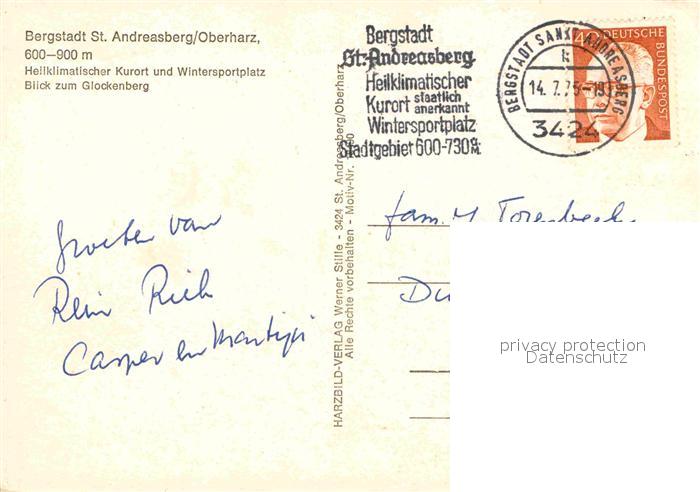 Bergstadt St. Andreasberg/Oberharz,
600—900 m
Heilklimatischer Kurort und Wintersportplatz
Blick zum Glockenberg
Bergstadt
St. Andreasberg
Heilklimatischer
Kurort staatlich anerkannt
Wintersportplatz
Stadtgebiet 600-730 m
BERGSTADT SANKT ANDREASBERG
k
14.7.75-19
3424
40 DEUTSCHE BUNDESPOST
Groeten van
Rein Riek
Casper en Martijn
HARZBILD-VERLAG Werner Stille - 3424 St. Andreasberg/Oberharz
Alle Rechte vorbehalten - Motiv-Nr.
fam. Torenbeek
privacy protection
Datenschutz